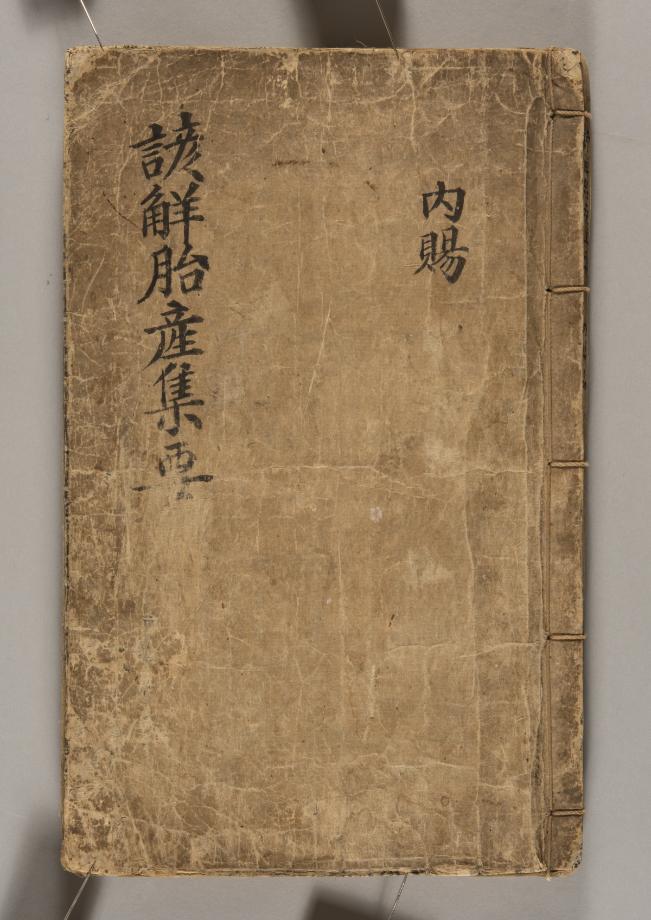 內賜
諺解胎産集要